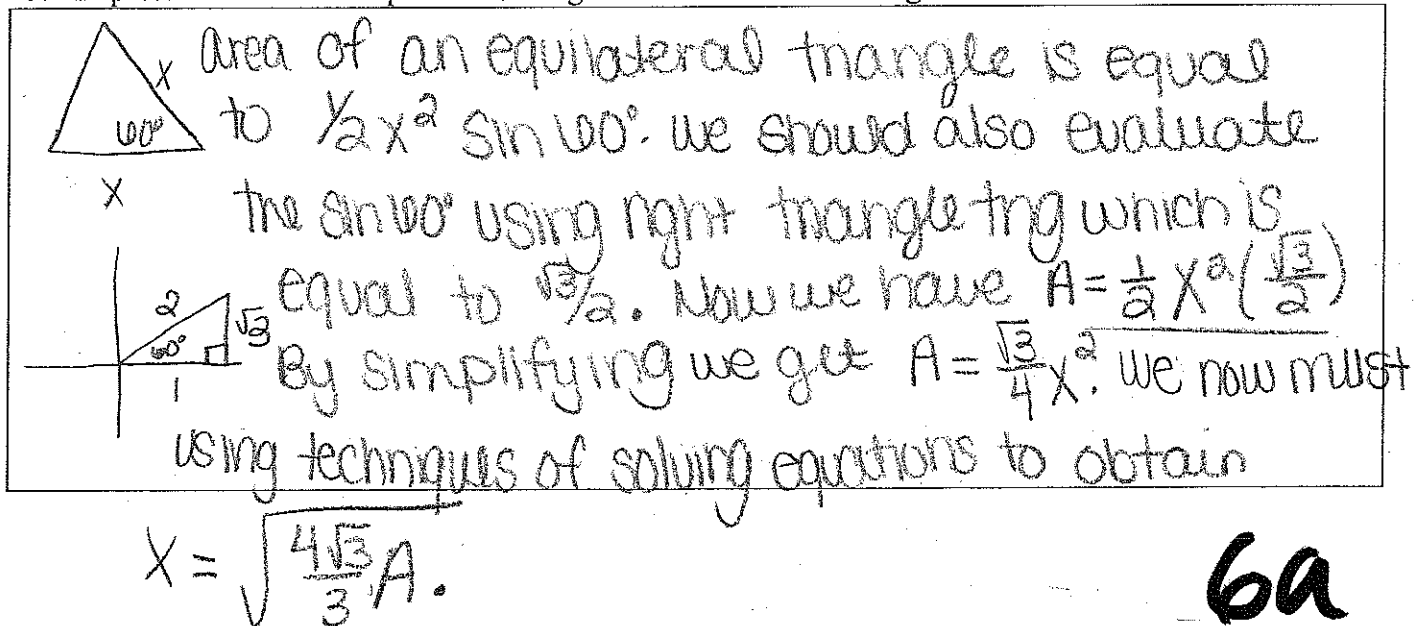 area of an equilateral triangle is equal
X
60°
to 1/2 x² sin 60°. we should also evaluate
X
the sin 60° using right triangle trig which is
equal to √3/2. Now we have A = 1/2 X² (√3/2)
2
60°
√3
1
By simplifying we get A = √3/4 x². We now must
using techniques of solving equations to obtain
X = √(4√3/3 A).
6a